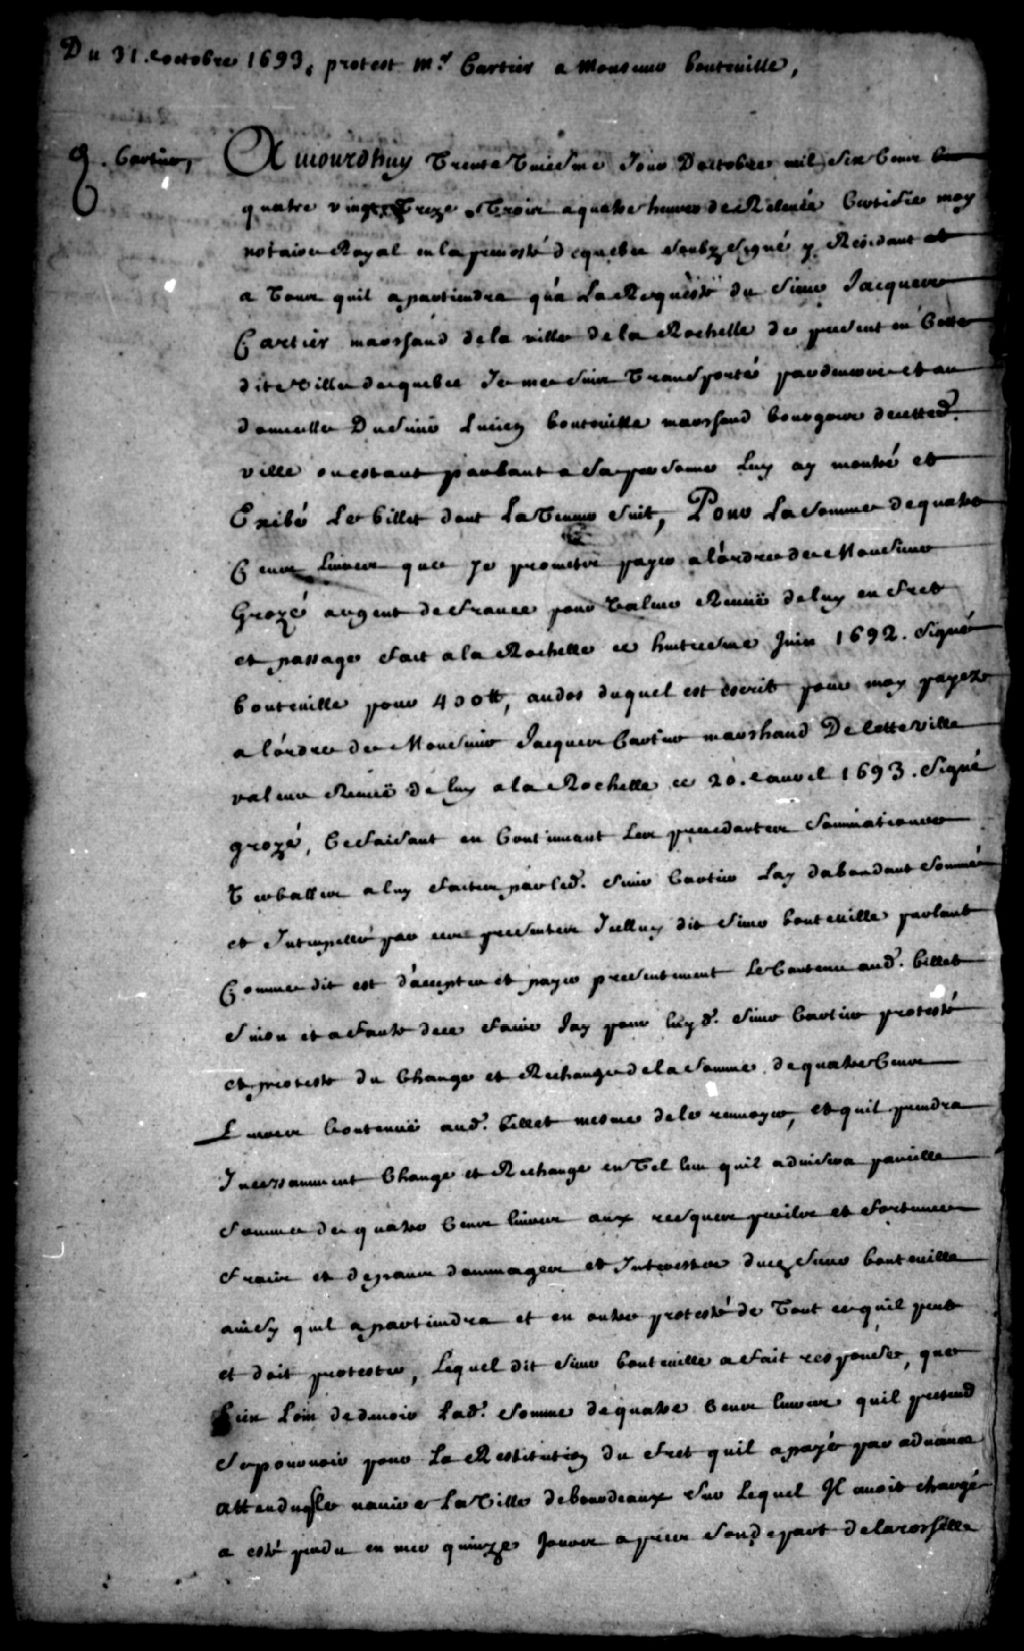 Du 31.e octobre 1693, protest mr. Cartier a Monsieur bouteuille,
g. Cartier,
Aujourdhuy Trente Uniesme Jour Doctobre mil Six Cens
quatre vingt Treze Trois a quatre heures de Relevée Certifie moy
notaire Royal en la prevosté de quebec soubz Signé y Residant et
a Tous quil apartiendra qu'a La Requeste du Sieur Jacques
Cartier marchand de la ville de la Rochelle de present en Cette
dite Ville de quebec Je me suis Transporté pardevers et au
domicille Du Sieur Lucien bouteuille marchand bourgeois de cetted.
ville ou estant parlant a Sa personne Luy ay montré et
Exibé Le billet dont La Teneur suit, Pour La somme de quatre
Cens Livres que Je promets payer a l'ordre de Monsieur
Grozé argent de france pour Valeur Receuë de luy en fret
et passage fait a la Rochelle ce huitiesme Juin 1692. Signé
bouteuille pour 400tt, au dos duquel est escrit pour moy payez
a l'ordre de Monsieur Jacques Cartier marchand De Cette Ville
valeur Receuë de luy a la Rochelle ce 20.e auril 1693. Signé
grozé, Ce faisant en Continuant Les precedantes Sommations
Verballes a luy faictes par led. Sieur Cartier Lay dabondant Sommé
et Interpellé par ces presentes Icelluy dit Sieur bouteuille parlant
Comme dit est d'accepter et payer presentement Le Contenu aud. billet
Sinon et a faute de ce faire Jay pour luyd. Sieur Cartier protesté
et proteste du Change et Rechange de la Somme de quatre Cens
Livres Contenuë aud. billet mesme de le renvoyer, et quil prendra
Incessamment Change et Rechange en Tel lieu quil advisera pareille
Somme de quatre Cens livres aux risques perils et fortunes
fraix et depans dommages et Interests dud. Sieur bouteuille
ainsy quil apartiendra et en outre protesté de Tout ce quil peut
et doit protester, Lequel dit Sieur bouteuille a fait response, que
bien Loin de devoir Lad. Somme de quatre Cens livres quil pretend
Se pourvoir pour La Restitution du fret quil a payé par advance
Attendu que Le navire La Ville de bourdeaux sur Lequel Il avoit chargé
a esté perdu en mer quinze Jours apres son depart de la rochelle